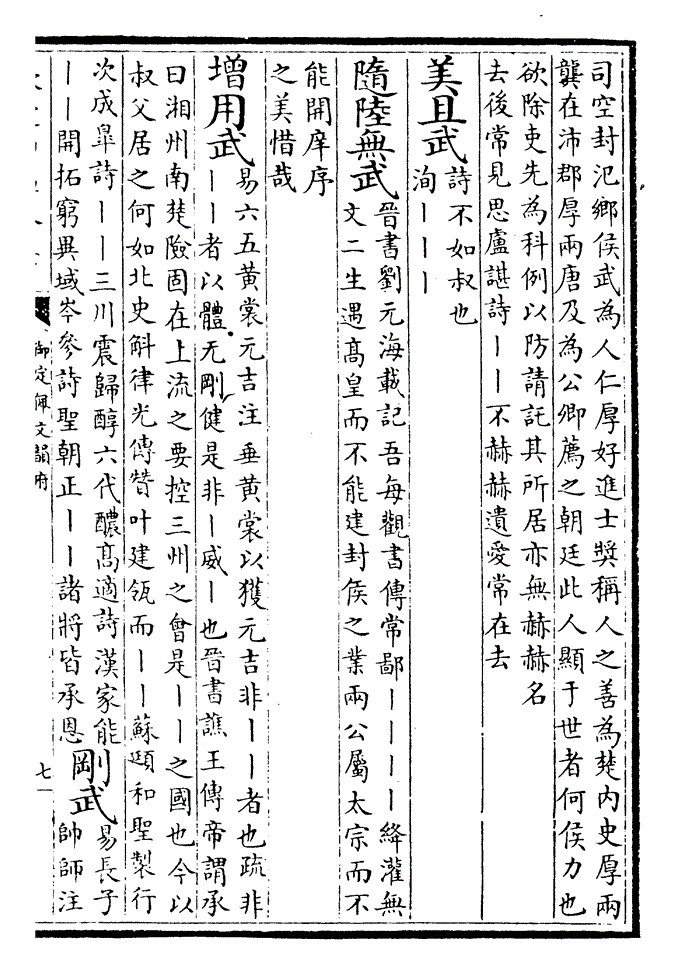 司空封氾鄉侯武為人仁厚好進士奬稱人之善為楚内史厚兩
龔在沛郡厚兩唐及為公卿薦之朝廷此人顯于世者何侯力也
欲除吏先為科例以防請託其所居亦無赫赫名
去後常見思盧諶詩丨丨不赫赫遺愛常在去
美且武
詩不如叔也
洵丨丨丨
隨陸無武
晉書劉元海載記吾每觀書傳常鄙丨丨丨丨絳灌無
文二生遇髙皇而不能建封侯之業兩公屬太宗而不
能開庠序
之美惜哉
增用武
易六五黄裳元吉注垂黄裳以獲元吉非丨丨者也疏非
丨丨者以體无剛健是非丨威丨也晉書譙王傳帝謂承
曰湘州南楚險固在上流之要控三州之會是丨丨之國也今以
叔父居之何如北史斛律光傳贊叶建瓴而丨丨蘇頲和聖製行
次成臯詩丨丨三川震歸醇六代醲髙適詩漢家能
丨丨開拓窮異域岑參詩聖朝正丨丨諸將皆承恩
剛武
易長子
帥師注
御定佩文韻府
七